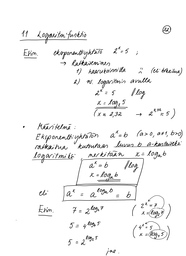 11 Logaritmi-funktio
Esim. eksponenttiyhtälö 2ˣ = 5 ;
→ ratkaiseminen
1) haarukoimalla
2) ns. logaritmin avulla
2ˣ = 5 || log
x = log₂5
(x ≈ 2,32 →
• Määritelmä:
Eksponenttiyhtälön aˣ = b (a>0, a≠1, b>0)
ratkaisua kutsutaan luvun b a-kantaiseksi
logaritmiksi merkitään x = logₐb
aˣ = b || log
x = logₐb
eli aˣ = a^(logₐb) = b
Esim. 7 = 2^(log₂7) (2ˣ = 7
x = log₂7)
5 = 4^(log₄5) (4ˣ = 5
x = log₄5)
5 = 2^(log₂5)
jne.